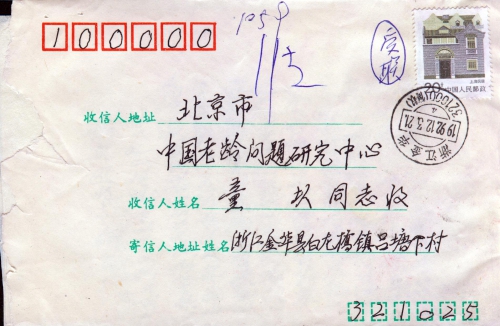 100000
20分
中国人民邮政
上海民居
收信人地址 北京市
中国老龄问题研究中心
收信人姓名 童 同志收
寄信人地址姓名 浙江金华县白龙桥镇吕塘下村
浙江金华
321025